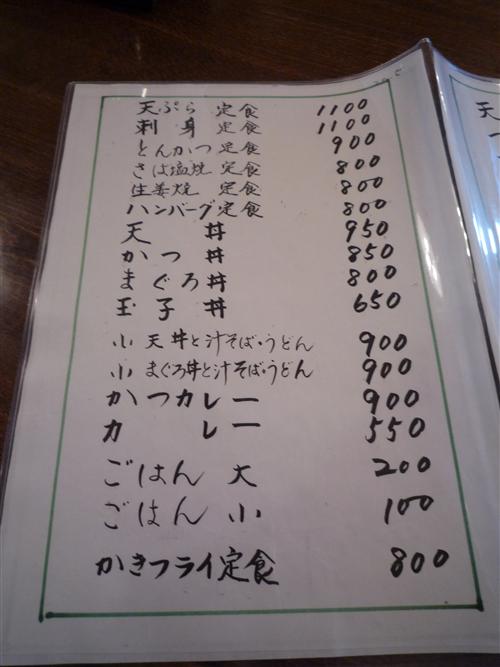 天ぷら 定食 1100
刺身 定食 1100
とんかつ定食 900
さば塩焼 定食 800
生姜焼 定食 800
ハンバーグ定食 800
天丼 950
かつ丼 850
まぐろ丼 800
玉子丼 650
小 天丼と汁そば・うどん 900
小 まぐろ丼と汁そば・うどん 900
かつカレー 900
カレー 550
ごはん 大 200
ごはん 小 100
かきフライ定食 800
天